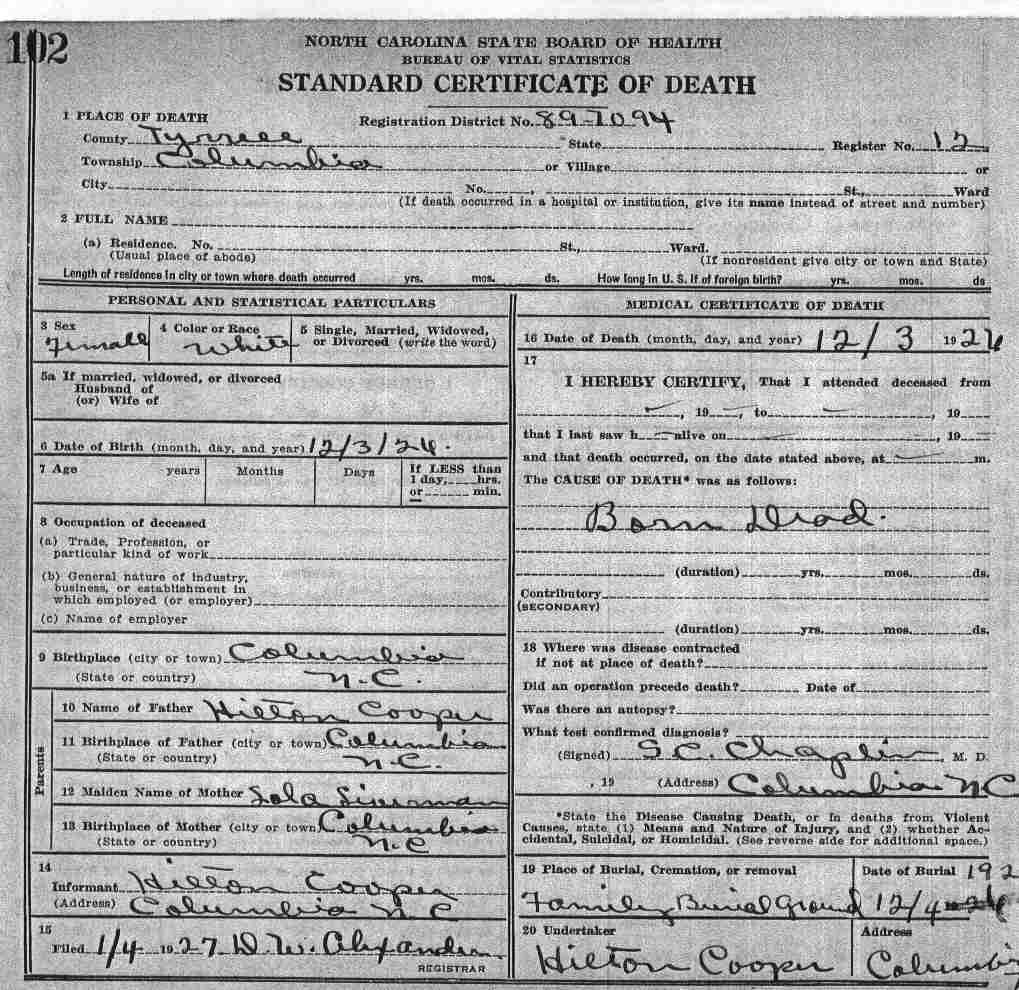 102
NORTH CAROLINA STATE BOARD OF HEALTH
BUREAU OF VITAL STATISTICS
STANDARD CERTIFICATE OF DEATH
1 PLACE OF DEATH
Registration District No. 89-7094
County Tyrrell State Register No. 12
Township Columbia or Village or
City No. , St., Ward
(If death occurred in a hospital or institution, give its name instead of street and number)
2 FULL NAME
(a) Residence. No. St., Ward.
(Usual place of abode) (If nonresident give city or town and State)
Length of residence in city or town where death occurred yrs. mos. ds. How long in U. S. if of foreign birth? yrs. mos. ds
PERSONAL AND STATISTICAL PARTICULARS
3 Sex
Female
4 Color or Race
White
5 Single, Married, Widowed,
or Divorced (write the word)
5a If married, widowed, or divorced
Husband of
(or) Wife of
6 Date of Birth (month, day, and year) 12/3/26.
7 Age years Months Days
If LESS than
1 day, hrs.
or min.
8 Occupation of deceased
(a) Trade, Profession, or
particular kind of work
(b) General nature of industry,
business, or establishment in
which employed (or employer)
(c) Name of employer
9 Birthplace (city or town) Columbia
(State or country) N.C.
Parents
10 Name of Father Hilton Cooper
11 Birthplace of Father (city or town) Columbia
(State or country) N.C.
12 Maiden Name of Mother Lola
13 Birthplace of Mother (city or town) Columbia
(State or country) N.C
14
Informant Hilton Cooper
(Address) Columbia N C
15
Filed 1/4 1927 D. W. Alexander
REGISTRAR
MEDICAL CERTIFICATE OF DEATH
16 Date of Death (month, day, and year) 12/3 1926
17
I HEREBY CERTIFY, That I attended deceased from
, 19 , to , 19
that I last saw h alive on , 19
and that death occurred, on the date stated above, at m.
The CAUSE OF DEATH* was as follows:
Born Dead.
(duration) yrs. mos. ds.
Contributory
(SECONDARY)
(duration) yrs. mos. ds.
18 Where was disease contracted
if not at place of death?
Did an operation precede death? Date of
Was there an autopsy?
What test confirmed diagnosis?
(Signed) S.C. Chaplin, M. D.
, 19 (Address) Columbia N C
*State the Disease Causing Death, or in deaths from Violent
Causes, state (1) Means and Nature of Injury, and (2) whether Ac-
cidental, Suicidal, or Homicidal. (See reverse side for additional space.)
19 Place of Burial, Cremation, or removal
Family Burial Ground
Date of Burial 192
12/4
20 Undertaker
Hilton Cooper
Address
Columbia